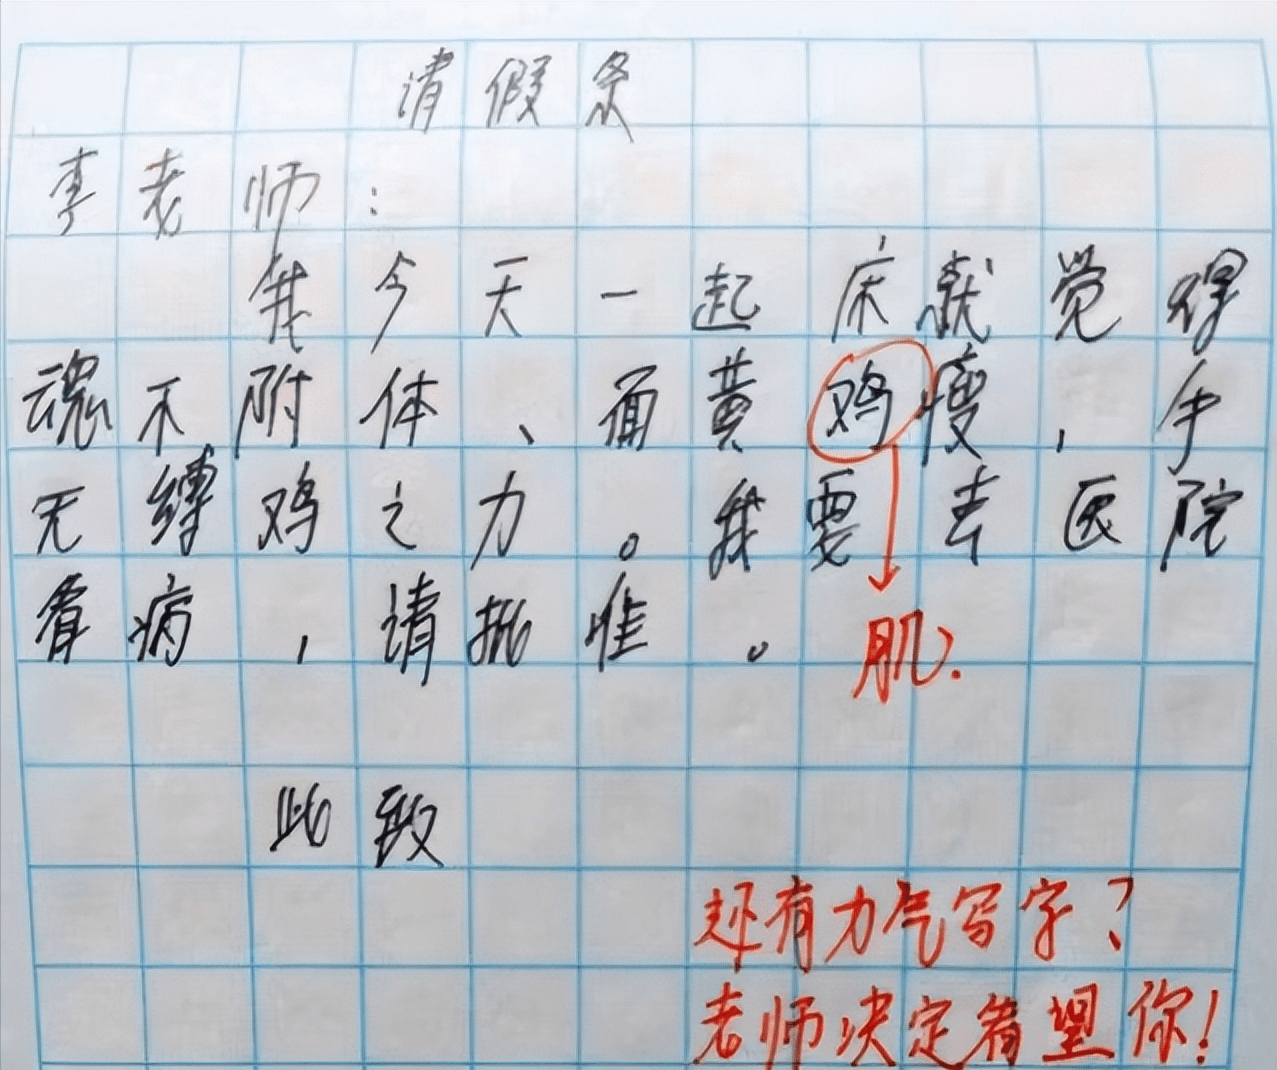 请假条
李老师：
我今天一起床就觉得
魂不附体、面黄鸡瘦，手
无缚鸡之力。我要去医院
看病，请批准。
肌.
此致
还有力气写字？
老师决定看望你！